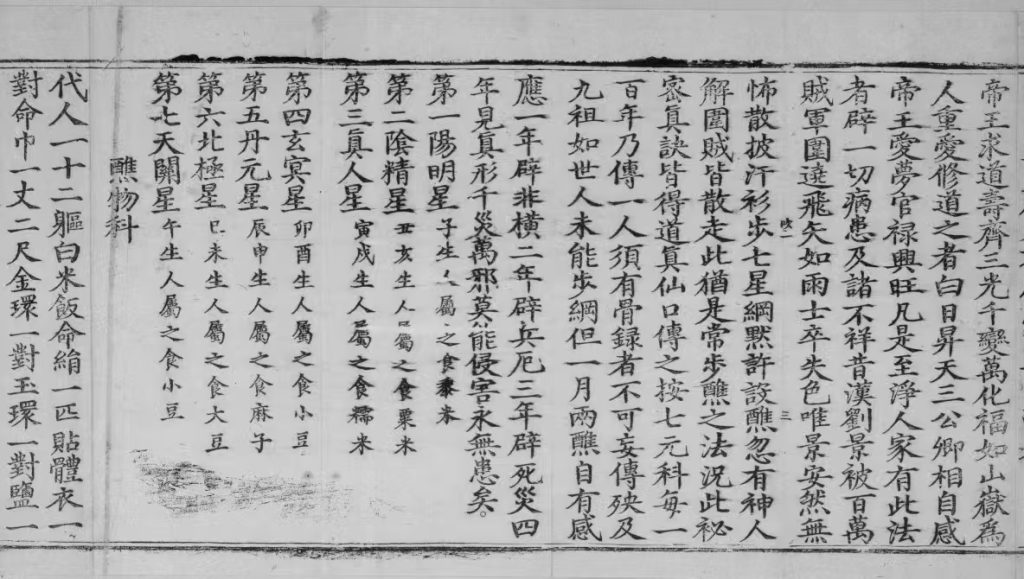 帝王求道壽齊三光千變萬化福如山嶽為
人重愛修道之者白日昇天三公卿相自感
帝王愛夢官禄興旺凡是至淨人家有此法
者辟一切病患及諸不祥昔漢劉景被百萬
賊軍圍遶飛矢如雨士卒失色唯景安然無
三
怖散披汗衫步七星綱黙許設醮忽有神人
解圍賊皆散走此猶是常步醮之法況此祕
密真訣皆得道真仙口傳之按七元科每一
百年乃傳一人須有骨録者不可妄傳殃及
九祖如世人未能步綱但一月兩醮自有感
應一年辟非橫二年辟兵厄三年辟死災四
年見真形千災萬邪莫能侵害永無患矣。
第一陽明星 子生人屬之食黍米
第二陰精星 丑亥生人屬之食粟米
第三真人星 寅戌生人屬之食糯米
第四玄冥星 卯酉生人屬之食小豆
第五丹元星 辰申生人屬之食麻子
第六北極星 巳未生人屬之食大豆
第七天關星 午生人屬之食小豆
醮物科
代人一十二軀白米飯命絹一匹貼體衣一
對命巾一丈二尺金環一對玉環一對鹽一